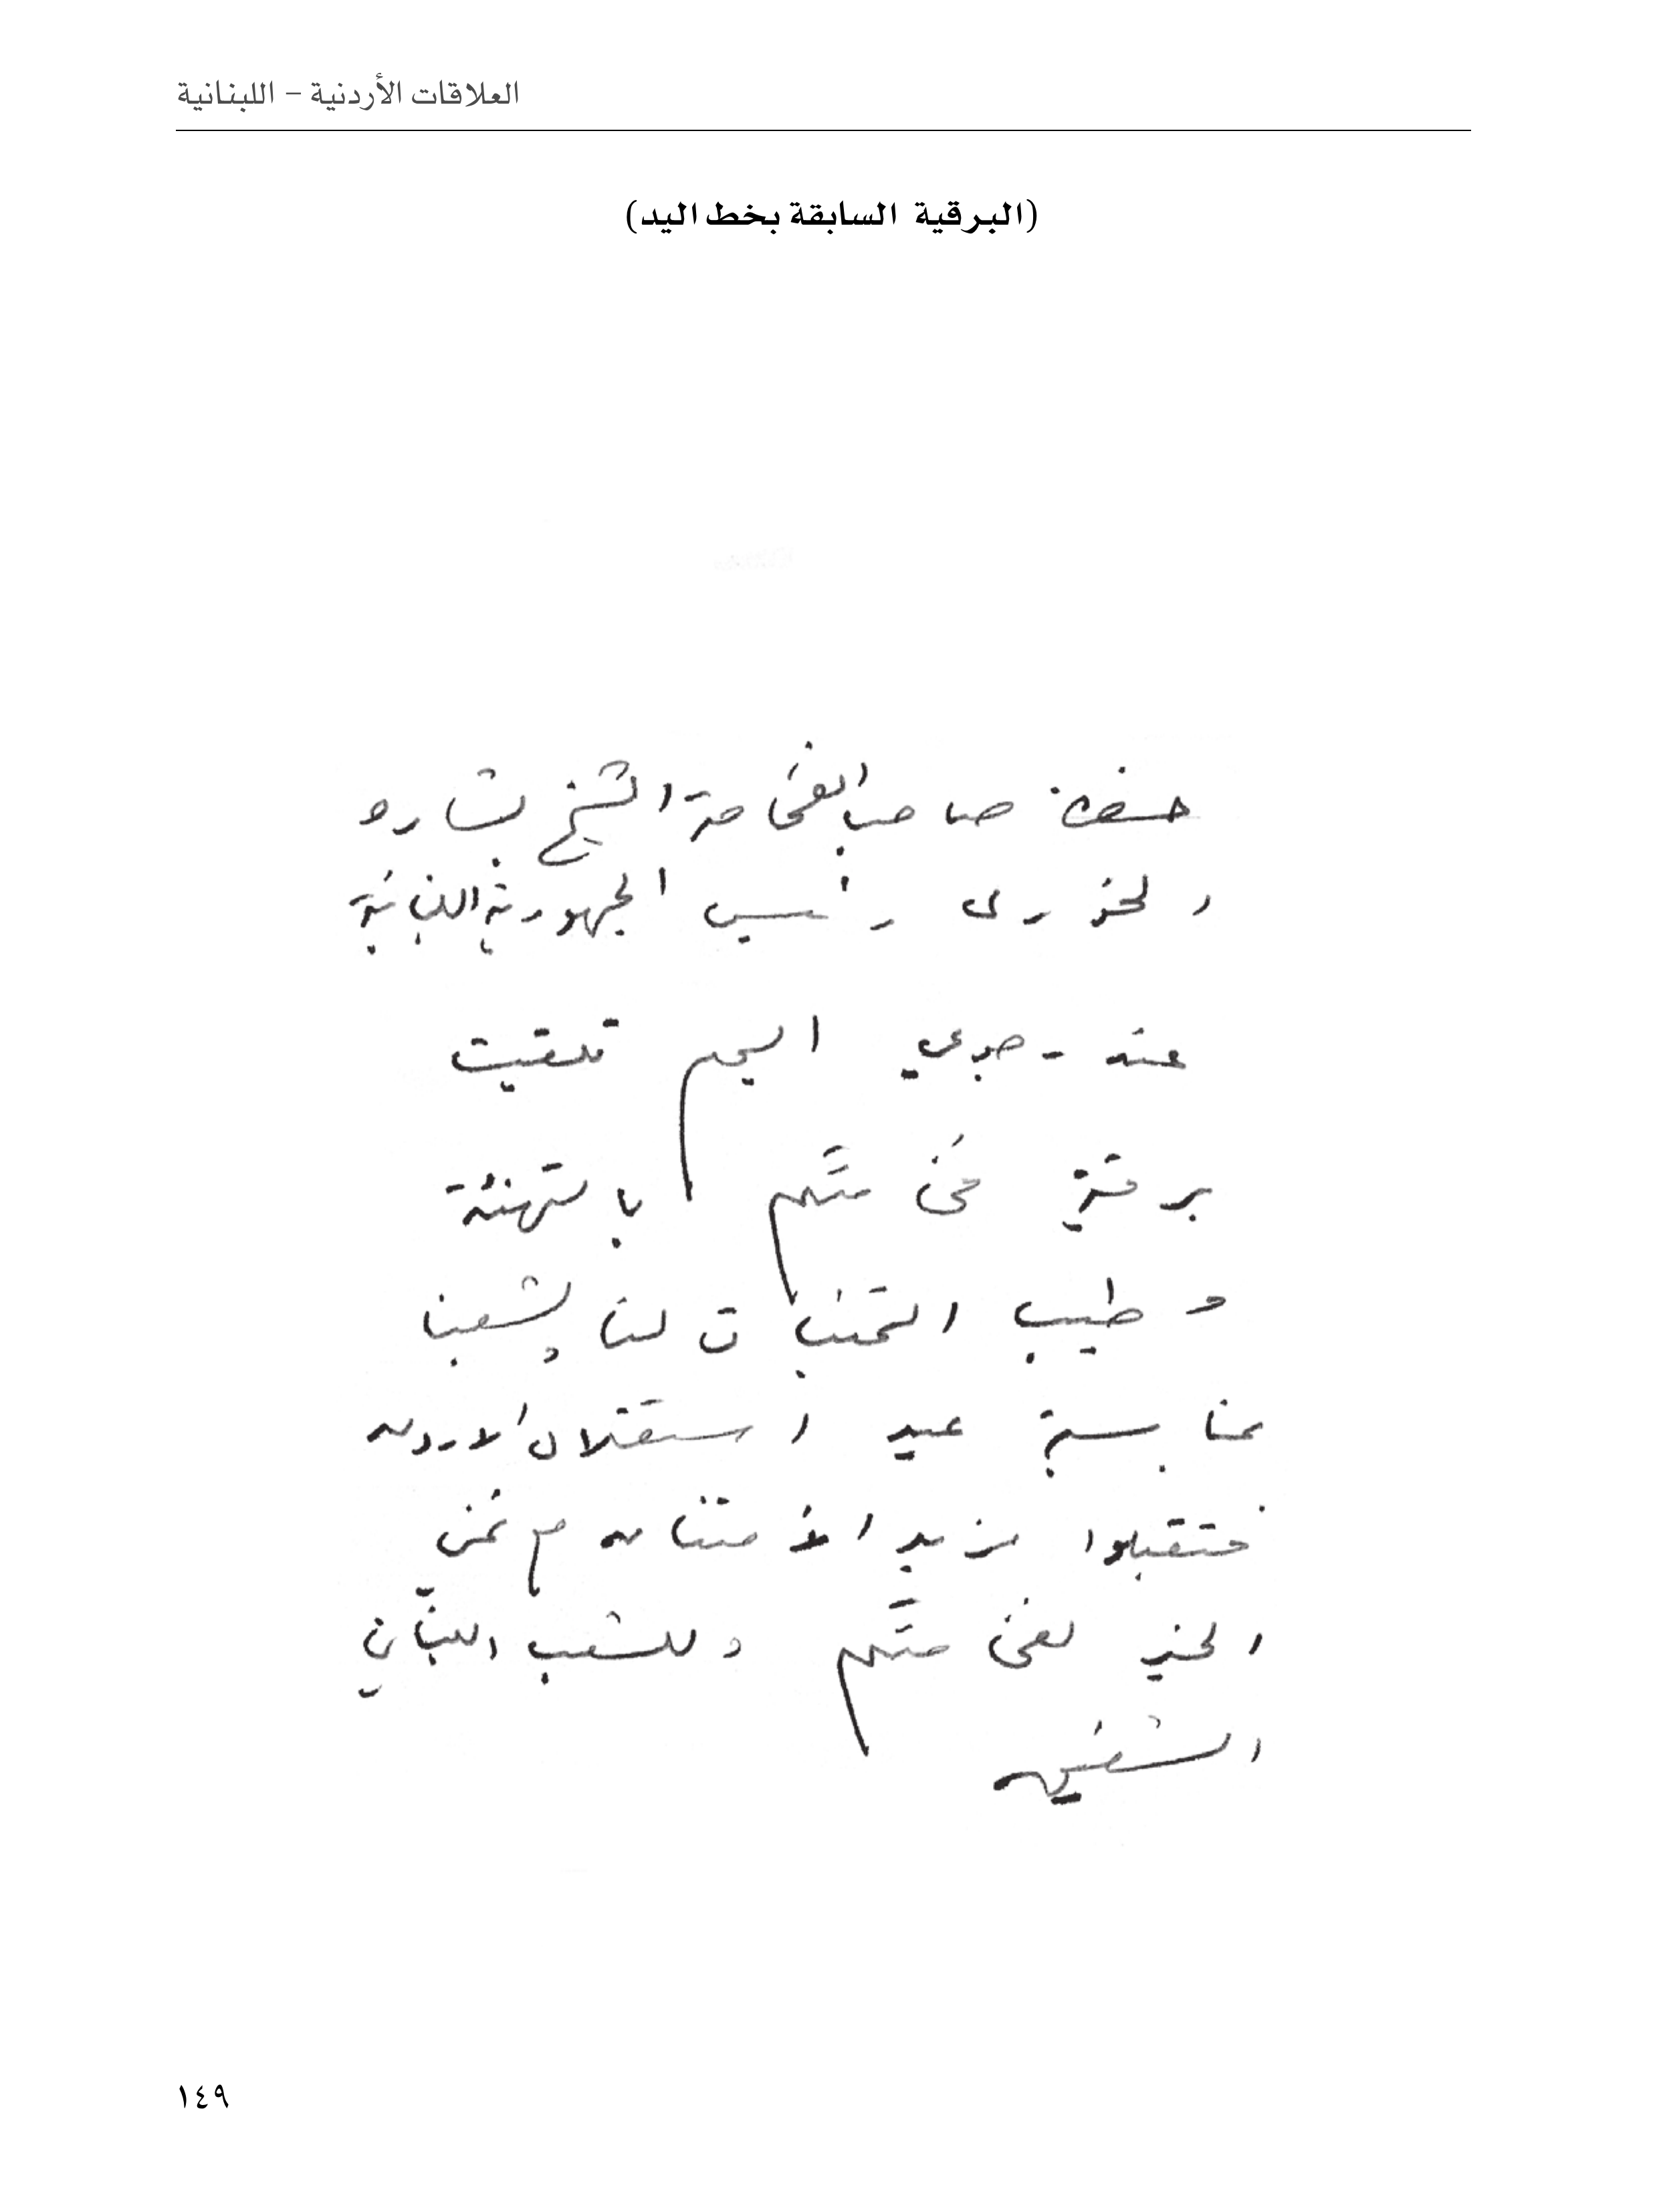 العلاقات الأردنية – اللبنانية
(البرقية السابقة بخط اليد)
حضرة صاحب الفخامة الشيخ بشاره
الخوري رئيس الجمهورية اللبنانية
عند رجوعي اليوم تلقيت
برقية فخامتكم بالتهنئة
وطيب التمنيات لنا ولشعبنا
بمناسبة عيد استقلال الاردن
فتقبلوا مزيد الامتنان مع تمني
الخير لفخامتكم وللشعب اللبناني
الشقيق
١٤٩